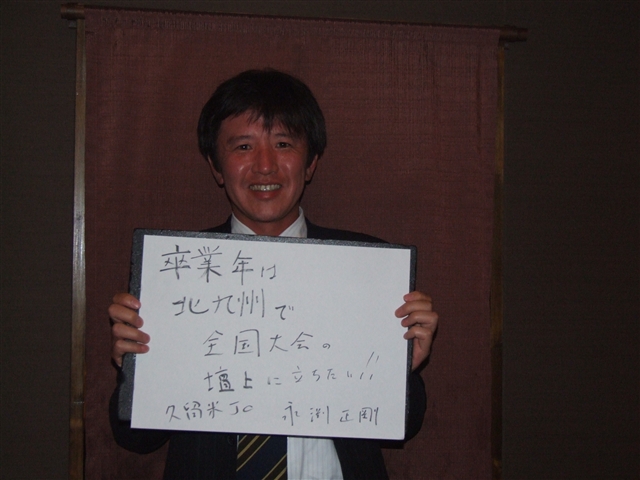 卒業年は
北九州で
全国大会の
壇上に立ちたい!!
久留米JC 永渕正剛